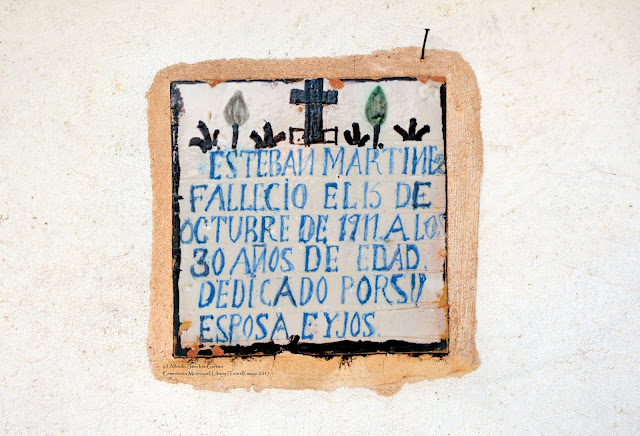 ESTEBAN MARTINEZ
FALLECIO EL 15 DE
OCTUBRE DE 1911. A LOS
30 AÑOS DE EDAD.
DEDICADO PORSU
ESPOSA E YJOS.
(c) Alfredo Sánchez Garzón
Cementerio Municipal, Libros (Teruel), mayo 2017